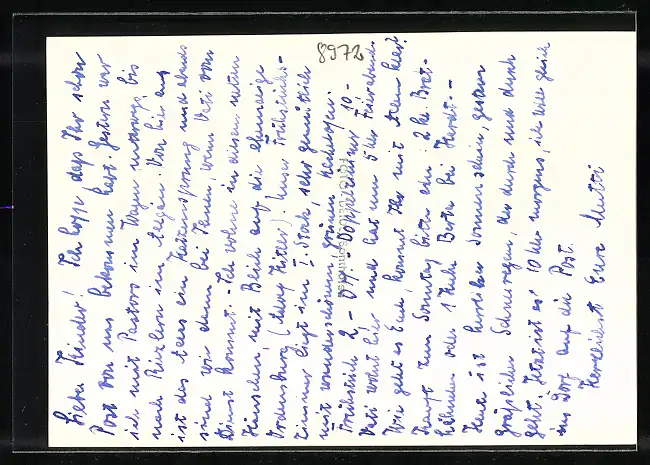 Liebe Kinder! Ich hoffe, dass Ihr schon
Post von uns bekommen habt. Gestern war
ich mit Pastors im Wagen unterwegs bis
nach Riezlern im Regen. Von hier aus
ist das ein Katzensprung und abends
sind wir dann bei Ihnen, wenn Vati vom
Dienst kommt. - Ich wohne in diesem netten
Häuschen, mit Blick auf die ehemalige
Ordensburg (Hitler). Unser Frühstücks-
zimmer liegt im I. Stock sehr gemütlich
mit wunderschönem, grünem
Frühstück 2.- DM. - Doppelzimmer 10.-
Vati wohnt hier und hat um 5 Uhr Feierabend.
Wie geht es Euch, kommt Ihr mit allem klar?
Kauft zum Sonntag bitte ein: 2 kl Brat-
hähnchen oder 1 Huhn bei -
Heute ist herrlicher Sonnenschein, gestern
grässlicher Schneeregen, der durch und durch
geht. Jetzt ist es 10 Uhr morgens, ich will gleich
ins Dorf auf die Post.
Herzlichst Eure Mutti
8972